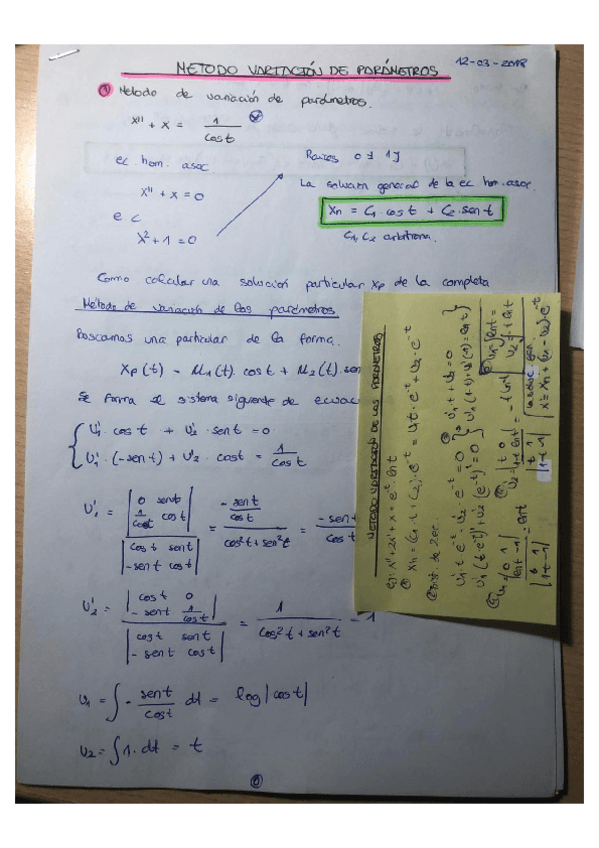 METODO VARIACIÓN DE PARÁMETROS 12-03-2018
① Método de variación de parámetros.
x'' + x = 1/cost ⊛
ec. hom. asoc
x'' + x = 0
e c
x² + 1 = 0
Raíces 0 ± 1j
La solución general de la ec hom. asoc.
Xn = C₁ · cos t + C₂ · sen t
C₁, C₂ arbitrarias.
Como calcular una solución particular xp de la completa
Método de variación de los parámetros
Buscamos una particular de la forma.
Xp(t) = u₁(t) · cos t + u₂(t) · sen
Se forma el sistema siguiente de ecuac
{ U'₁ · cos t + U'₂ · sen t = 0
U'₁ · (-sen t) + U'₂ · cos t = 1/cos t
U'₁ = |0 sent; 1/cost cost| / |cos t sen t; -sen t cos t| = (-sen t/cos t) / (cos²t + sen²t) = -sen t / cos t
U'₂ = |cos t 0; -sen t 1/cos t| / |cos t sen t; -sen t cos t| = 1 / (cos²t + sen²t) = 1
u₁ = ∫ - sen t/cos t dt = log |cos t|
u₂ = ∫ 1 · dt = t
①
METODO VARIACION DE LOS PARÁMETROS
Ej: x'' + 2x' + x = e⁻ᵗ · ln t
Xn = (C₁ · t + C₂) · e⁻ᵗ = U₁ t · e⁻ᵗ + U₂ · e⁻ᵗ
sist. de 2 ec.